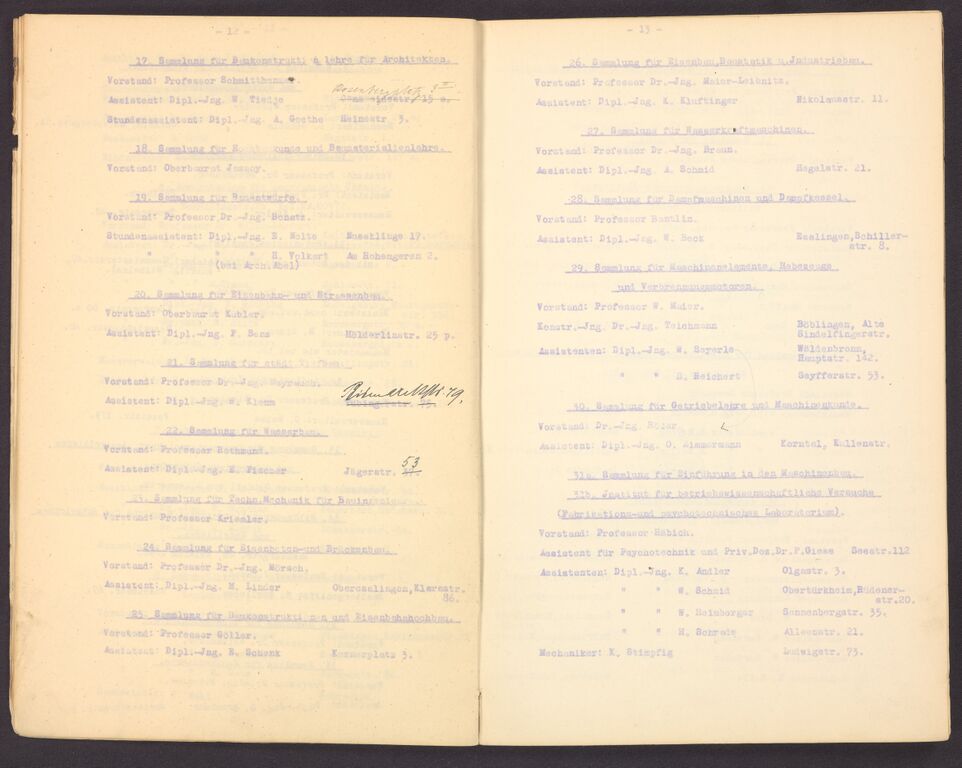 - 12 -
17. Sammlung für Baukonstruktionslehre für Architekten.
Vorstand: Professor Schmitthenner
Assistent: Dipl.-Jng. W. Tiedje 15 c.
Stundenassistent: Dipl.-Jng. A. Goethe Heinestr 3.
und Baumaterialienlehre.
Vorstand: Oberbaurat Jassoy.
19. Sammlung für Bauentwürfe.
Vorstand: Professor Dr.-Jng. Bonatz.
Stundenassistent: Dipl.-Jng. E. Nolte Hasshlinge 19.
" " " H. Volkart Am Hohengeren 2.
(bei Arch.Abel)
20. Sammlung für Eisenbahn- und Strassenbau.
Vorstand: Oberbaurat Kübler.
Assistent: Dipl.-Jng. F. Bens Hölderlinstr. 25 p.
21. Sammlung für städt. Tiefbau.
Vorstand: Professor Dr.-Jng. Mayreuch.
Assistent: Dipl.-Jng. W. Klemm 79.
22. Sammlung für Wasserbau.
Vorstand: Professor Rothmund.
Assistent: Dipl.-Jng. E. Fischer Jägerstr. 53
23. Sammlung für Techn.Mechanik für Bauingenieure.
Vorstand: Professor Kriemler.
24. Sammlung für Eisenbeton-und Brückenbau.
Vorstand: Professor Dr.-Jng. Mörsch.
Assistent: Dipl.-Jng. M. Linder Oberesslingen,Klarastr.
86.
25. Sammlung für Baukonstruktionen und Eisenbahnhochbau.
Vorstand: Professor Göller.
Assistent: Dipl.-Jng. E. Schenk Kernerplatz 3.
- 13 -
26. Sammlung für Eisenbau,Baustatik u.Jndustriebau.
Vorstand: Professor Dr.-Jng. Maier-Leibnitz.
Assistent: Dipl.-Jng. K. Kluftinger Nikolausstr. 11.
27. Sammlung für Wasserkraftmaschinen.
Vorstand: Professor Dr.-Jng. Braun.
Assistent: Dipl.-Jng. A. Schmid Hegelstr. 21.
28. Sammlung für Dampfmaschinen und Dampfkessel.
Vorstand: Professor Bantlin.
Assistent: Dipl.-Jng. W. Beck Esslingen,Schiller-
str. 8.
29. Sammlung für Maschinenelemente, Hebezeuge
und Verbrennungsmotoren.
Vorstand: Professor W. Maier.
Konstr.-Jng. Dr.-Jng. Teichmann Böblingen, Alte
Sindelfingerstr.
Assistenten: Dipl.-Jng. W. Bayerle Waldenbronn,
Hauptstr. 142.
" " S. Reichert Seyfferstr. 53.
30. Sammlung für Getriebelehre und Maschinenkunde.
Vorstand: Dr.-Jng. Röder
Assistent: Dipl.-Jng. O. Zimmermann Korntal, Kullenstr.
31a. Sammlung für Einführung in den Maschinenbau.
31b. Jnstitut für betriebswissenschaftliche Versuche
(Fabrikations-und psychotechnisches Laboratorium).
Vorstand: Professor Häbich.
Assistent für Psychotechnik und Priv.Doz.Dr.F.Giese Seestr.112
Assistenten: Dipl.-Jng. K. Andler Olgastr. 3.
" " W. Schmid Obertürkheim,Rüdener-
str.20.
" " W. Heimberger Sonnenbergstr. 35.
" " H. Schmeis Alleenstr. 21.
Mechaniker: K. Stimpfig Ludwigstr. 73.